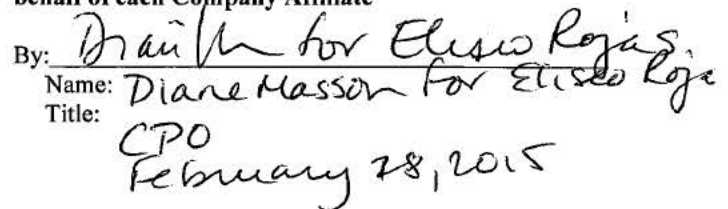 behalf of each Company Affiliate
By: for Eliseo Rojas
Name: Diane Masson for Eliseo Roja
Title:
CPO
February 28, 2015